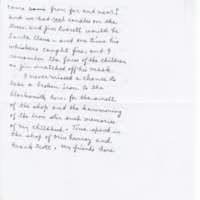 came some from far and near!
and we had real candles on the
trees, and Jim Everett would be
Santa Claus - and one time his
whiskers caught fire, and I
remember the faces of the children
as Jim snatched off his mask.
I never missed a chance to
take a broken iron to the
blacksmith here, for the smell
of the shop and the hammering
of the iron stir such memories
of my childhood. Time spent in
the shop of Orin Barney and
Frank Scott. My friends here